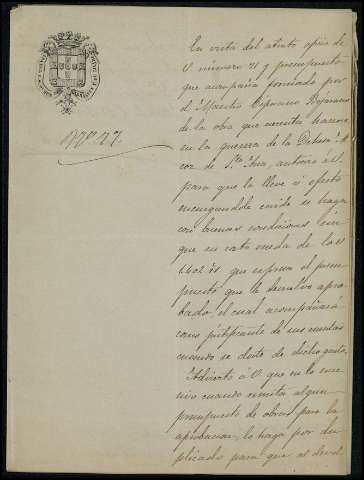 Nº 27.
En vista del atento oficio de
V. número 21 y presupuesto
que acompaña formado por
el Maestro Cipriano Bejarano
de la obra que necesita hacerse
en la de la Dehesa
de Sta. Ana, autorizo á V.
para que la lleve á efecto
encargandole cuide se haga
con buenas condiciones, sin
que su costo esceda de los
1.402 rs que espresa el presu-
puesto que le devuelvo apro-
bado, el cual acompañará
como justificante de sus cuentas
cuando se date de dicho gasto.
Advierto á V. que en lo suce-
sivo cuando remita algun
presupuesto de obras para la
aprobacion, lo haga por du-
plicado para que al devol